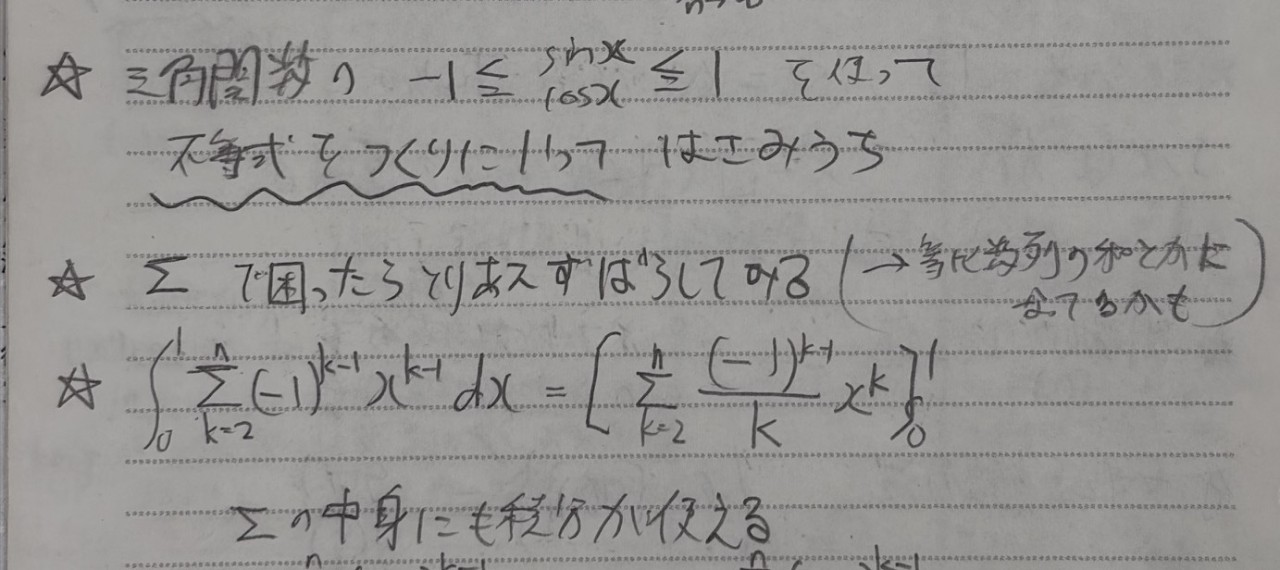 ☆ 三角関数の -1 ≦ sinx cosx ≦ 1 を使って
不等式をつくりにいって はさみうち
☆ Σ で困ったらとりあえずばらしてみる (→等比数列の和とかに
なってるかも)
☆ ∫_0^1 Σ_{k=2}^n (-1)^{k-1} x^{k-1} dx = [ Σ_{k=2}^n (-1)^{k-1}/k x^k ]_0^1
Σの中身にも積分が使える